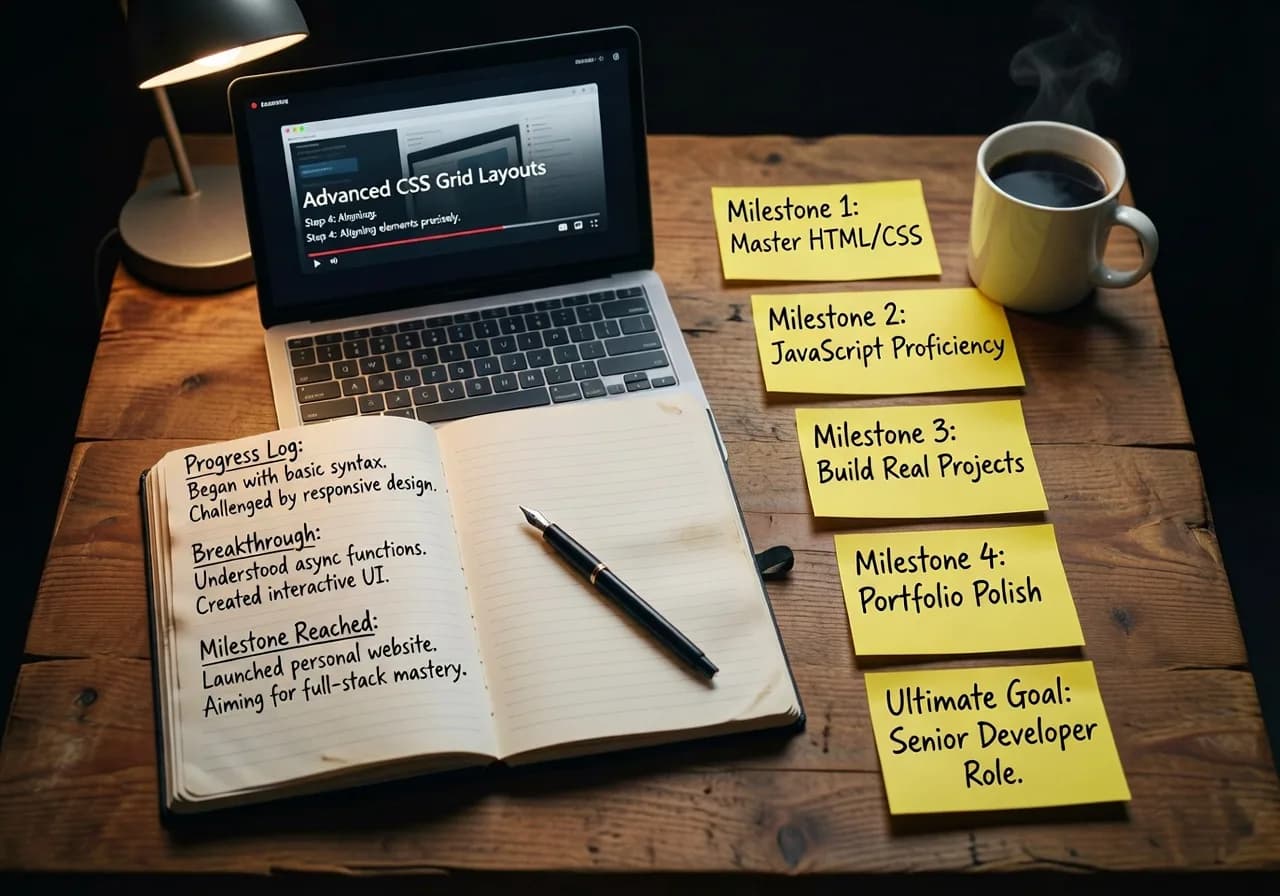 Advanced CSS Grid Layouts
Step 4: Aligning
Step 4: Aligning elements precisely.
Progress Log:
Began with basic syntax.
Challenged by responsive design.
Breakthrough:
Understood async functions.
Created interactive UI.
Milestone Reached:
Launched personal website.
Aiming for full-stack mastery.
Milestone 1:
Master HTML/CSS
Milestone 2:
JavaScript Proficiency
Milestone 3:
Build Real Projects
Milestone 4:
Portfolio Polish
Ultimate Goal:
Senior Developer
Role.